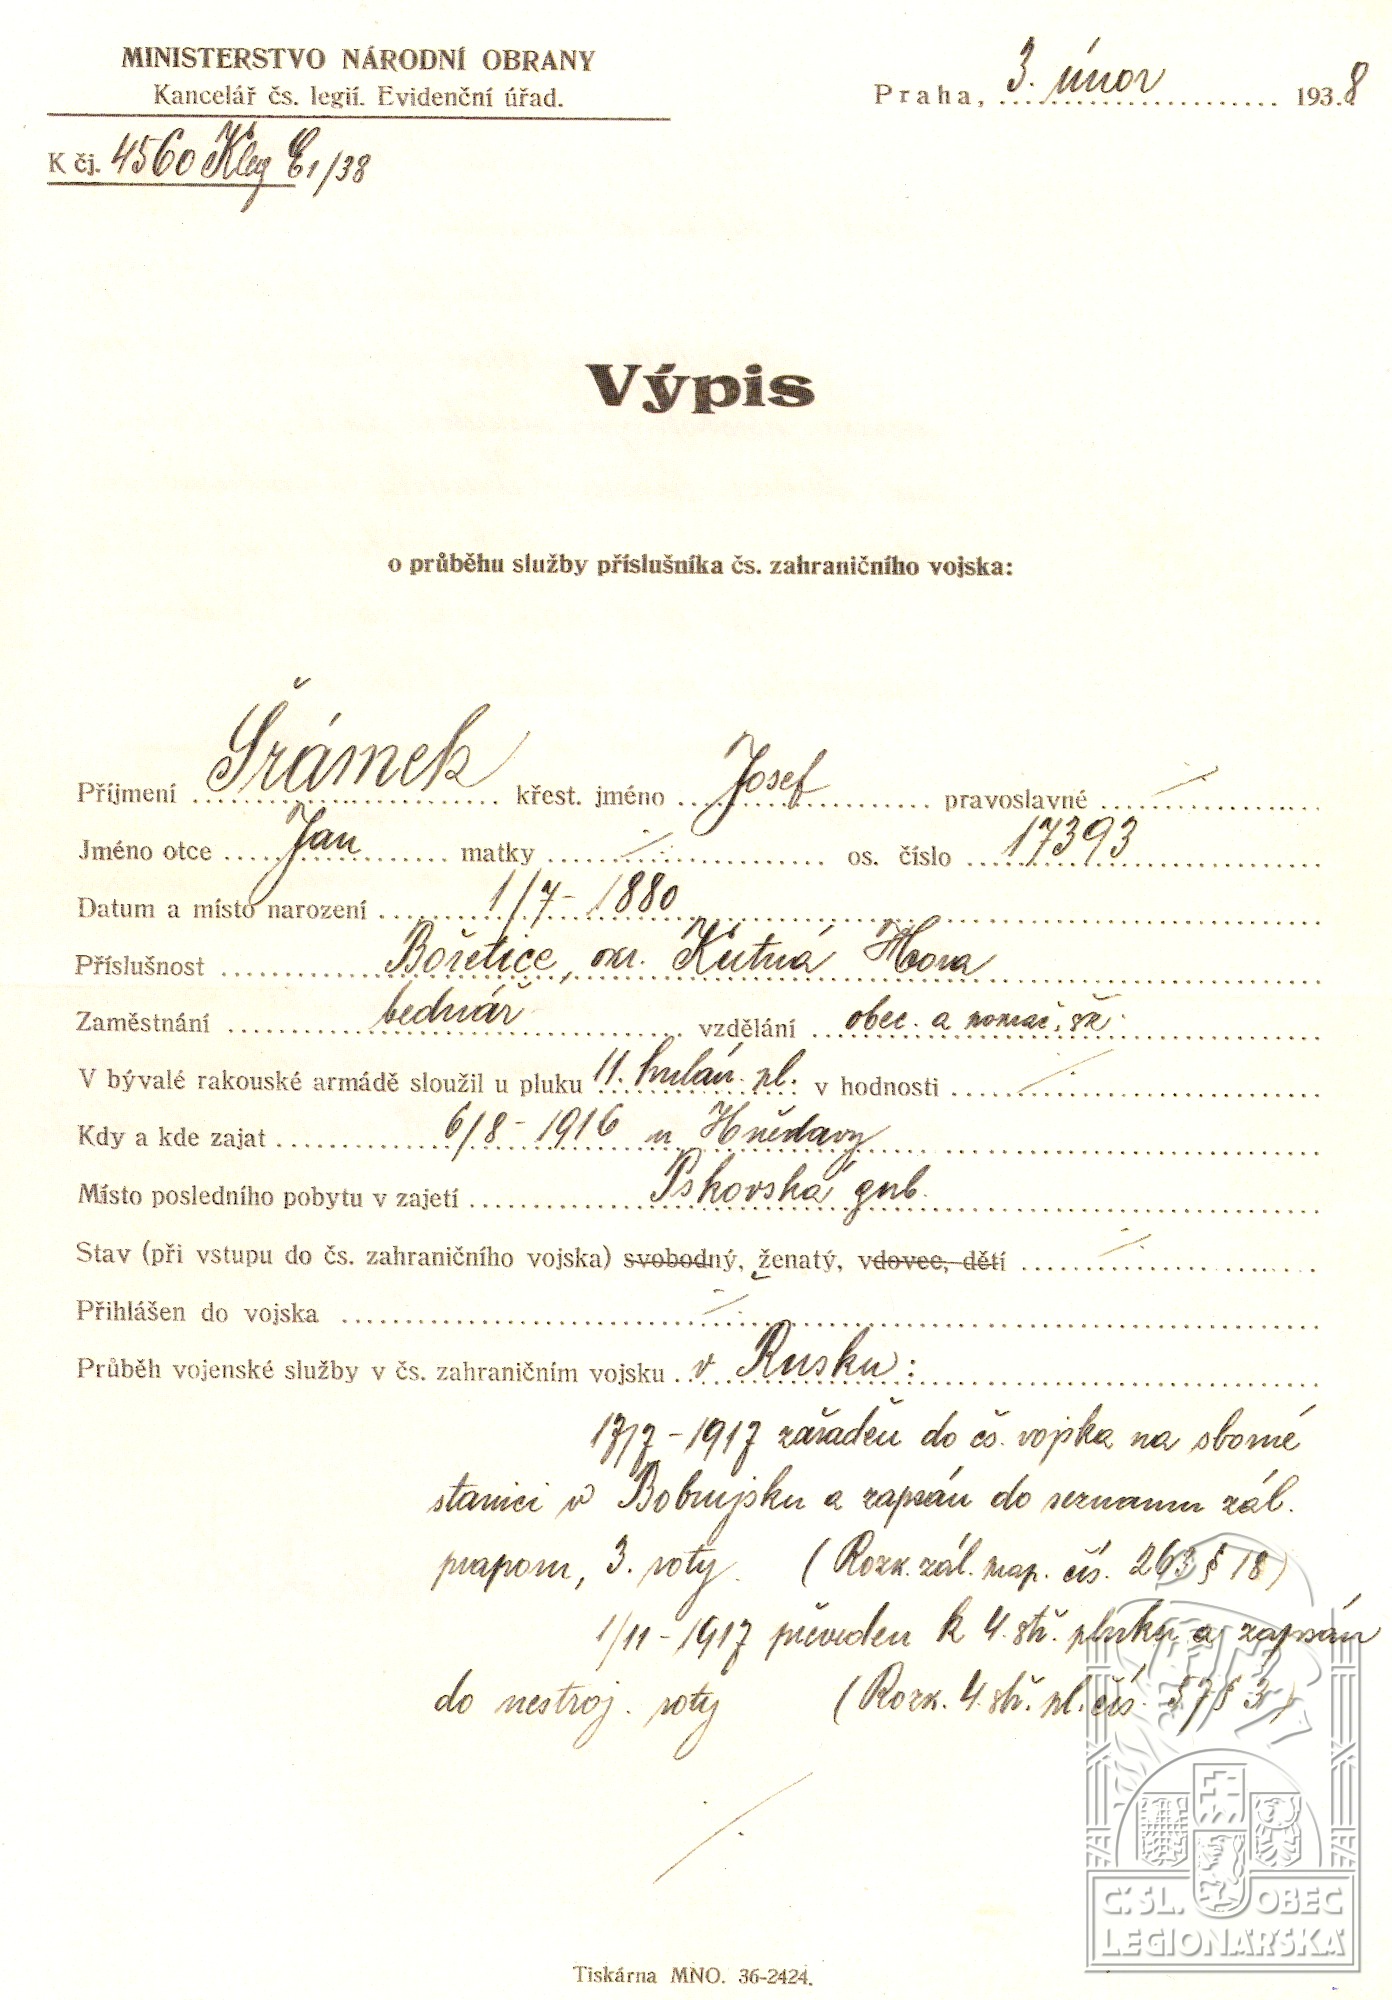 MINISTERSTVO NÁRODNÍ OBRANY
Kancelář čs. legií. Evidenční úřad.
Praha, 3. únor 1938
K čj. 4560 Kleg E1/38
Výpis
o průběhu služby příslušníka čs. zahraničního vojska:
Příjmení Šrámek křest. jméno Josef pravoslavné ./.
Jméno otce Jan matky ./. os. číslo 17393
Datum a místo narození 1/7 - 1880
Příslušnost Bořetice, okr. Kutná Hora
Zaměstnání bednář vzdělání obec. a pokrač. šk.
V bývalé rakouské armádě sloužil u pluku 11. hulán. pl. v hodnosti ./.
Kdy a kde zajat 6/8 - 1916 u Hnědavy
Místo posledního pobytu v zajetí Pskovská gub.
Stav (při vstupu do čs. zahraničního vojska) svobodný, ženatý, vdovec, dětí ./.
Přihlášen do vojska ./.
Průběh vojenské služby v čs. zahraničním vojsku v Rusku:
17/7 - 1917 zařaděn do čs. vojska na sborné
stanici v Bobrujsku a zapsán do seznamu zál.
praporu, 3. roty. (Rozk. zál. prap. čís. 263 § 18)
1/11 - 1917 převeden k 4. stř. pluku a zapsán
do nestroj. roty (Rozk. 4. stř. pl. čís. 57 § 3)
./.
Č. SL. OBEC
LEGIONÁŘSKÁ
Tiskárna MNO. 36-2424.